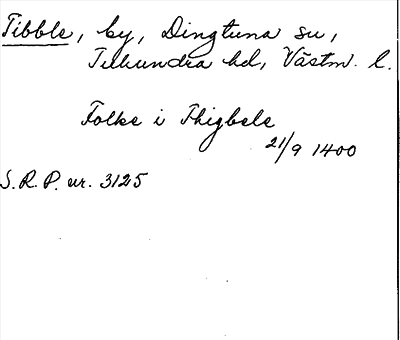 Tibble, by, Dingtuna sn,
Tuhundra hd, Västm. l.
Folke i Thigbele
21/9 1400
S.R.P. nr. 3125